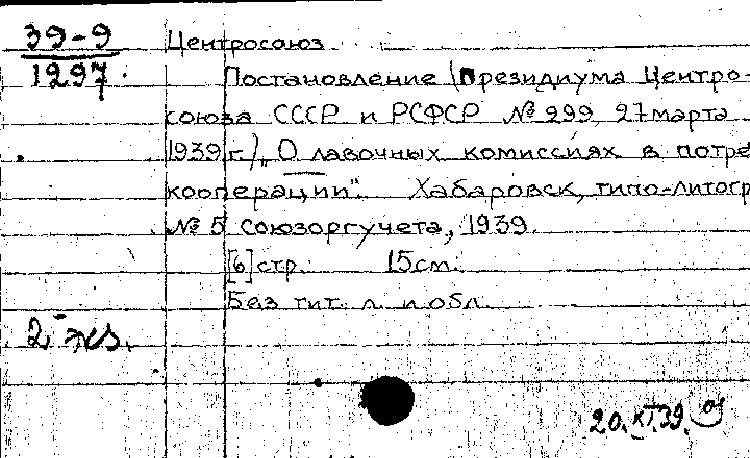 39-9
1297.
Центросоюз
Постановление (Президиума Центро-
союза СССР и РСФСР № 299 27 марта
1939 г.) „О лавочных комиссиях в потре
кооперации". Хабаровск, типо-литогр
№ 5 Союзоргучета, 1939.
[6] стр. 15 см.
Без тит. л. и обл.
2 экз.
20. 39.